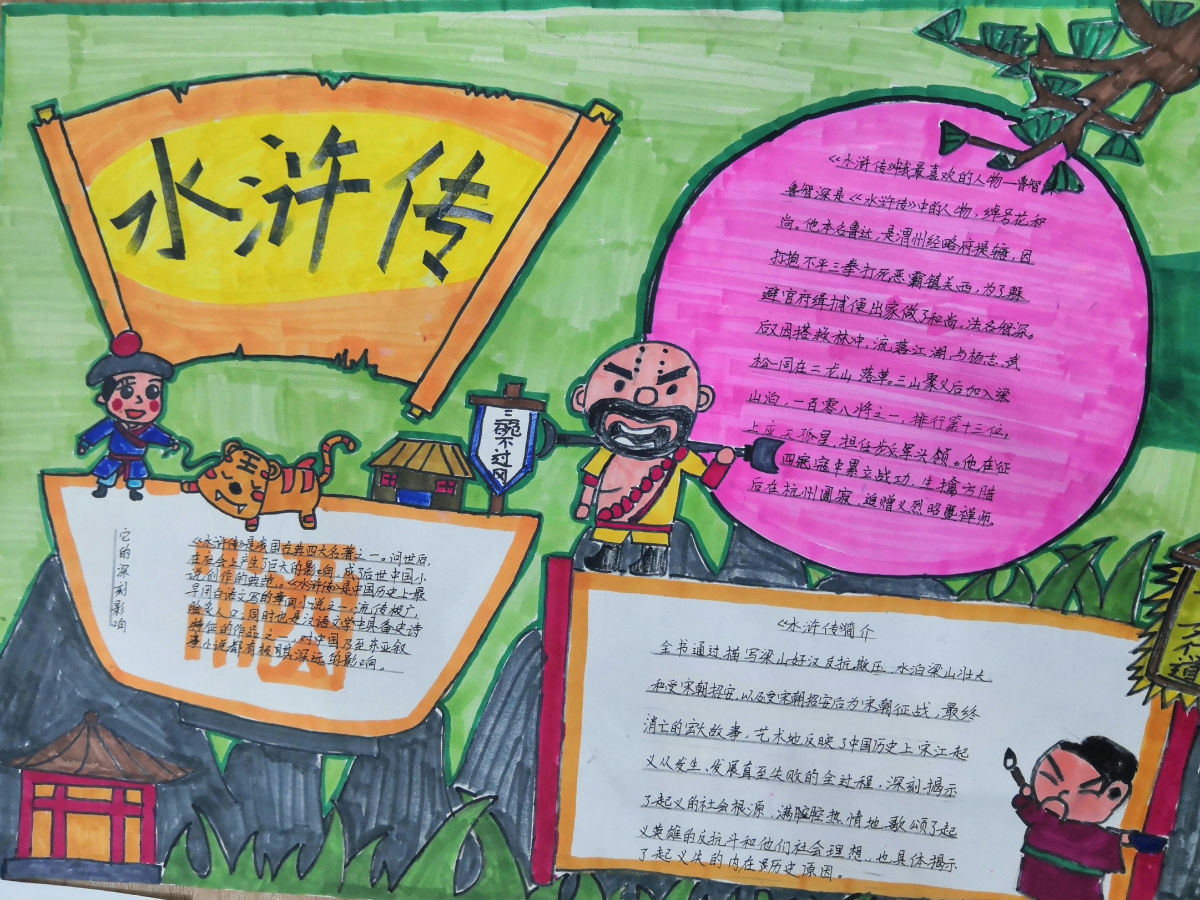 水浒传
《水浒传》我最喜欢的人物—鲁智深
鲁智深是《水浒传》中的人物,绰号花和
尚。他本名鲁达,是渭州经略府提辖,因
打抱不平三拳打死恶霸镇关西,为了躲
避官府缉捕便出家做了和尚,法名智深。
后因搭救林冲,流落江湖,与杨志、武
松一同在二龙山落草。三山聚义后加入梁
山泊,一百零八将之一,排行第十三位,
上应天孤星,担任步军头领。他在征
四寇中累立战功,生擒方腊
后在杭州圆寂,追赠义烈昭暨禅师。
三碗不过冈
它的深刻影响
《水浒传》是我国古典四大名著之一。问世后,
在社会上产生了巨大的影响,成了后世中国小
说创作的典范。《水浒传》是中国历史上最
早用白话文写的章回小说之一,流传极广,
脍炙人口;同时也是汉语文学中具备史诗
特征的作品之一,对中国乃至东亚叙
事小说都有极其深远的影响。
《水浒传》简介
全书通过描写梁山好汉反抗欺压、水泊梁山壮大
和受宋朝招安,以及受宋朝招安后为宋朝征战,最终
消亡的宏大故事,艺术地反映了中国历史上宋江起
义从发生、发展直至失败的全过程,深刻揭示
了起义的社会根源,满腔热情地歌颂了起
义英雄的反抗斗和他们社会理想,也具体揭示
了起义失的内在历史原因。